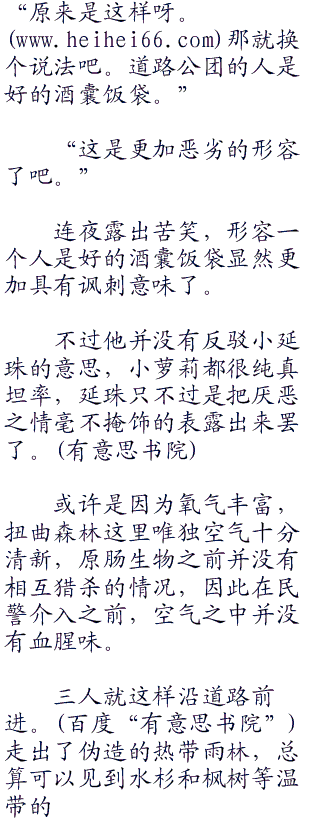 “原来是这样呀。
(www.heihei66.com)那就换
个说法吧。道路公团的人是
好的酒囊饭袋。”
“这是更加恶劣的形容
了吧。”
连夜露出苦笑，形容一
个人是好的酒囊饭袋显然更
加具有讽刺意味了。
不过他并没有反驳小延
珠的意思，小萝莉都很纯真
坦率，延珠只不过是把厌恶
之情毫不掩饰的表露出来罢
了。(有意思书院)
或许是因为氧气丰富，
扭曲森林这里唯独空气十分
清新，原肠生物之前并没有
相互猎杀的情况，因此在民
警介入之前，空气之中并没
有血腥味。
三人就这样沿道路前
进。(百度“有意思书院”)
走出了伪造的热带雨林，总
算可以见到水杉和枫树等温
带的